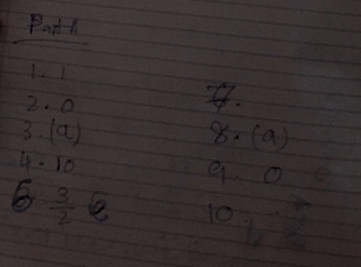 Part A
1. 1
2. 0
3. (a)
4. 10
6 3/2
8. (a)
9. 0
10.